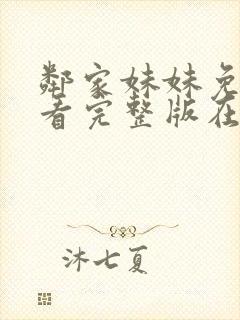 鄰家妹妹免
看完整版在
沐七夏